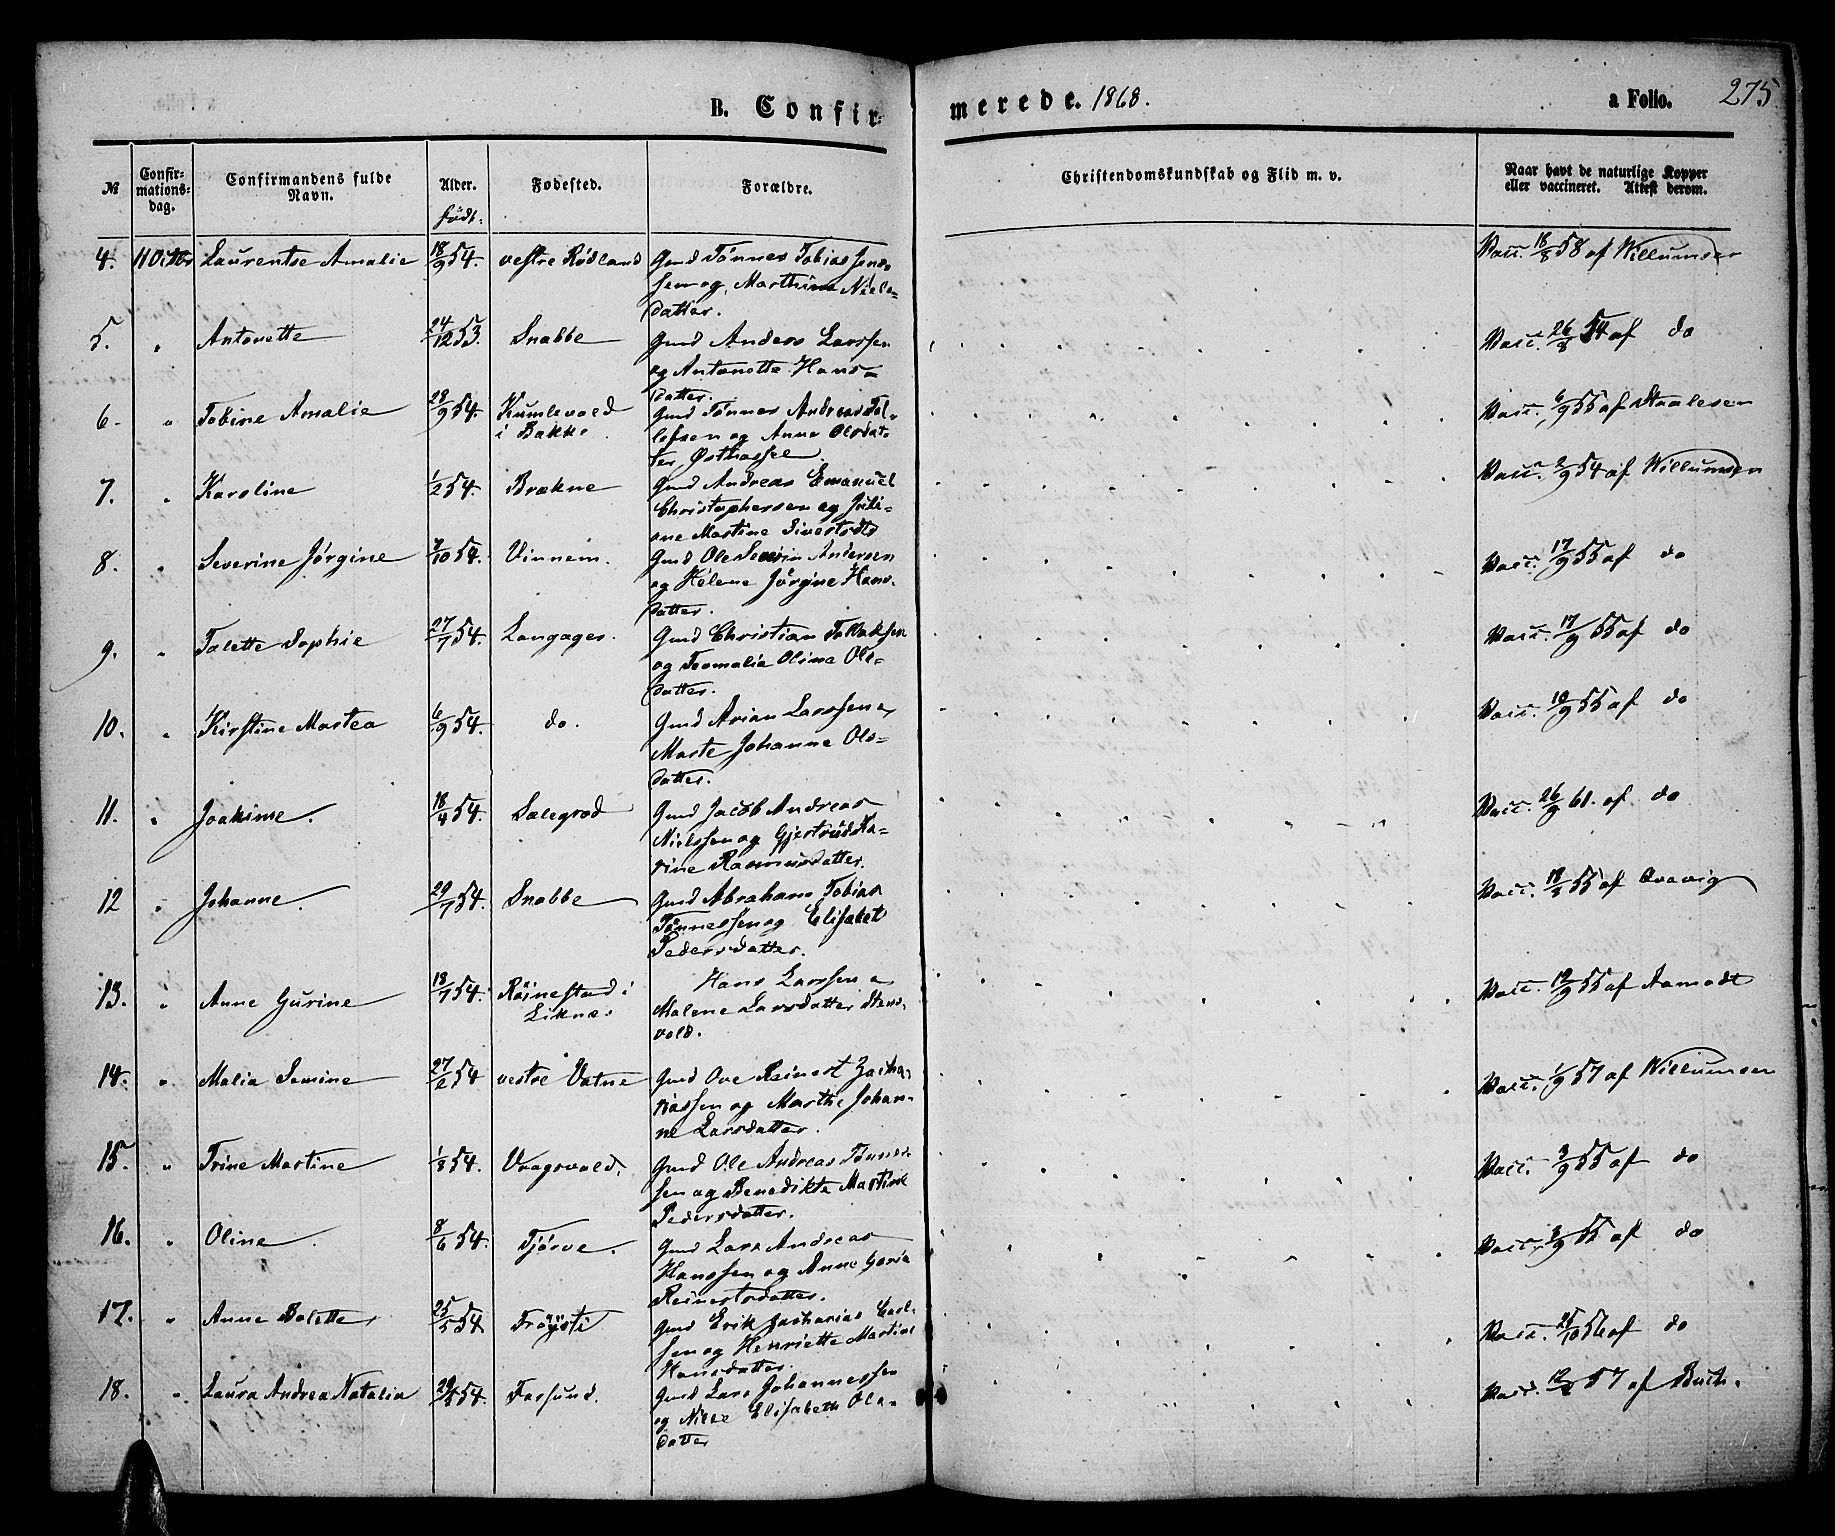 B. Confirmerede. 1868. a Folio. 275
№ Confirmationsdag. Confirmandens fulde Navn. Alder. født. Fødested. Forældre. Christendomskundskab og Flid m. v. Naar havt de naturlige Kopper eller vaccineret. Attest derom.
4. 11 Octbr Laurentse Amalie 18/9 54. vestre Rødland Gmd Tønnes Tobiassen Vacc. 18/8 58 af Willumsen
og Marthine Niels-
datter.
5. " Antonette 24/12 53. Snabbe Gmd Anders Larssen Vacc. 26/8 54 af do
og Antonette Hans-
datter.
6. " Tobine Amalie 28/9 54. Kumlevold Gmd Tønnes Andreas Tol- Vacc. 6/9 55 af Staalesen
i Bakke lefsen og Anne Olsdat-
ter Østhassel.
7. " Karoline 1/2 54. Brækne Gmd Andreas Emanuel Vacc. 2/9 54 af Willumsen
Christophersen og Juli-
ane Martine Sivertsdtr
8. " Severine Jørgine 7/10 54. Vinnem. Gmd Ole Severin Andersen Vacc. 17/9 55 af do
og Helene Jørgine Hans-
datter.
9. " Talette Sophie 27/7 54. Langager. Gmd Christian Tollaksen Vacc. 17/9 55 af do
og Tromalia Oline Ols-
datter.
10. " Kirstine Martea 6/9 54. do. Gmd Arian Larssen Vacc. 10/9 55 af do
Marte Johanne Ols-
datter.
11. " Joakime. 18/4 54. Salegrod Gmd Jacob Andreas Vacc. 26/9 61. af do
Nielssen og Gjertrud Ka-
rine Rasmusdatter.
12 " Johanne. 29/7 54. Snabbe Gmd Abraham Tobias Vacc. 18/8 55 af Qvavig
Tønnessen og Elisabet
Pedersdatter.
13. " Anne Gurine 18/7 54. Røinestad i Hans Larssen Vacc. 12/9 55 af Aamodt
Liknes Malene Larsdatter Stens-
vold.
14. " Malia Semine 27/2 54 vestre Vatne Gmd Ove Reinert Zacha- Vacc. 1/9 57 af Willumsen
riassen og Marthe Johan-
ne Larsdatter.
15. " Trine Martine 1/8 54. Vragsvold. Gmd Ole Andreas Tønnes- Vacc. 3/9 55 af do
sen og Benedikte Martine
Pedersdatter.
16. " Oline. 8/6 54. Tjørve. Gmd Lars Andreas Vacc. 3/9 55 af do
Hanssen og Anne Goria
Reinertsdatter.
17. " Anne Bolette 25/5 54 Frøysti Gmd Erik Zacharias Carl- Vacc. 25/10 56 af do
sen og Henriette Martine
Hansdatter
18. " Laura Andrea Natalia 29/5 54. Farsund. Gmd Lars Johannessen Vacc. 12/8 57 af Buch.
og Nille Elisabeth Ols-
datter